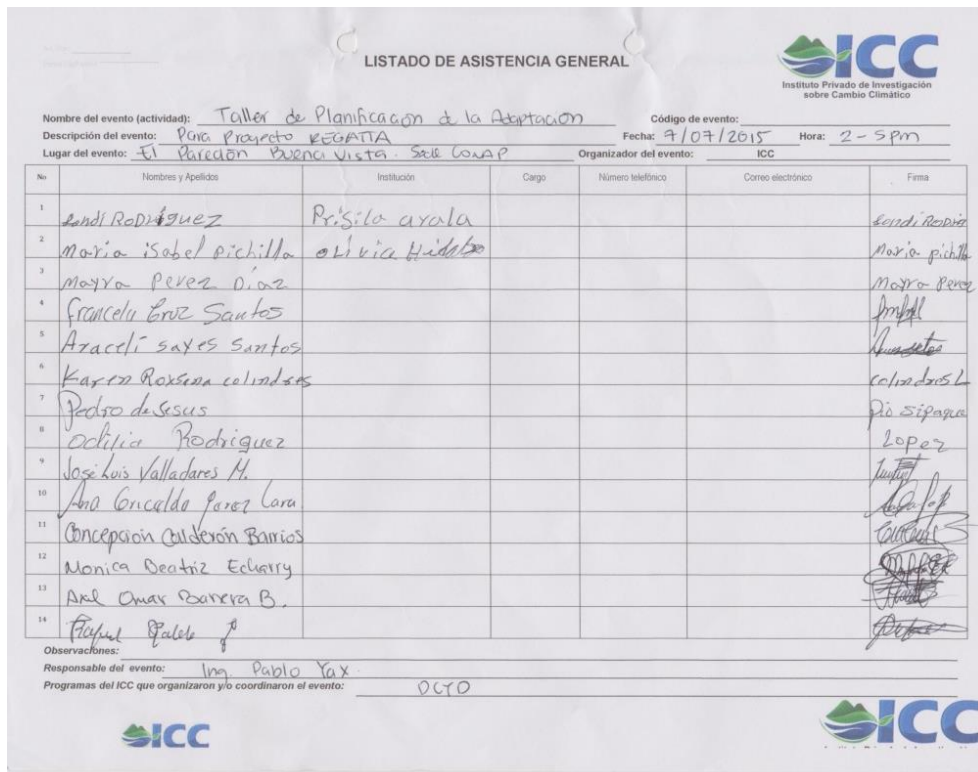 LISTADO DE ASISTENCIA GENERAL
ICC
Instituto Privado de Investigación
sobre Cambio Climático
Nombre del evento (actividad): Taller de Planificación de la Adaptación Código de evento:
Descripción del evento: Para Proyecto REGATTA Fecha: 7/07/2015 Hora: 2-5pm
Lugar del evento: El Paredón Buena Vista. Sede CONAP Organizador del evento: ICC
No Nombres y Apellidos Institución Cargo Número telefónico Correo electrónico Firma
1 Sandi RODRIGUEZ Prisila ayala
2 Maria isabel pichilla oLivia Hidalgo Maria pichilla
3 Mayra Perez Díaz Mayra Perez
4 Cruz Santos
5 Araceli sayes Santos
6 Karen Roxsena colindres colindres L
7 Pedro de Jesus Pio Sipaque
8 Odilia Rodriguez Lopez
9 José Luis Valladares M.
10 Ana Gricelda Perez Lara
11 Concepcion Calderón Barrios
12 Monica Beatriz Echarry
13 Axel Omar Barrera B.
14 Rafael
Observaciones:
Responsable del evento: Ing. Pablo Yax
Programas del ICC que organizaron y/o coordinaron el evento: DCTO
ICC
ICC